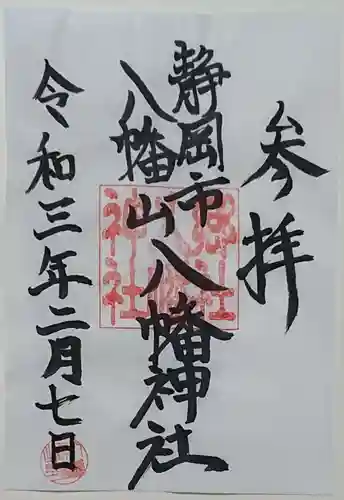 参拝
静岡市
八幡山八幡神社
令和三年二月七日